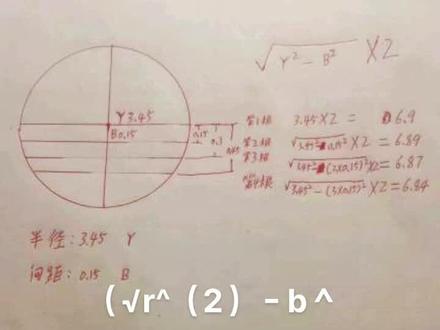 √Y²-B² X2
Y 3.45
B 0.15
0.15
0.3
0.45
第1根 3.45X2 = 6.9
第2根 √3.45²-0.15² X2 = 6.89
第3根 √3.45²-(2X0.15)² X2 = 6.87
第4根 √3.45²-(3X0.15)² X2 = 6.84
半径:3.45 Y
间距:0.15 B
(√r^(2)-b^